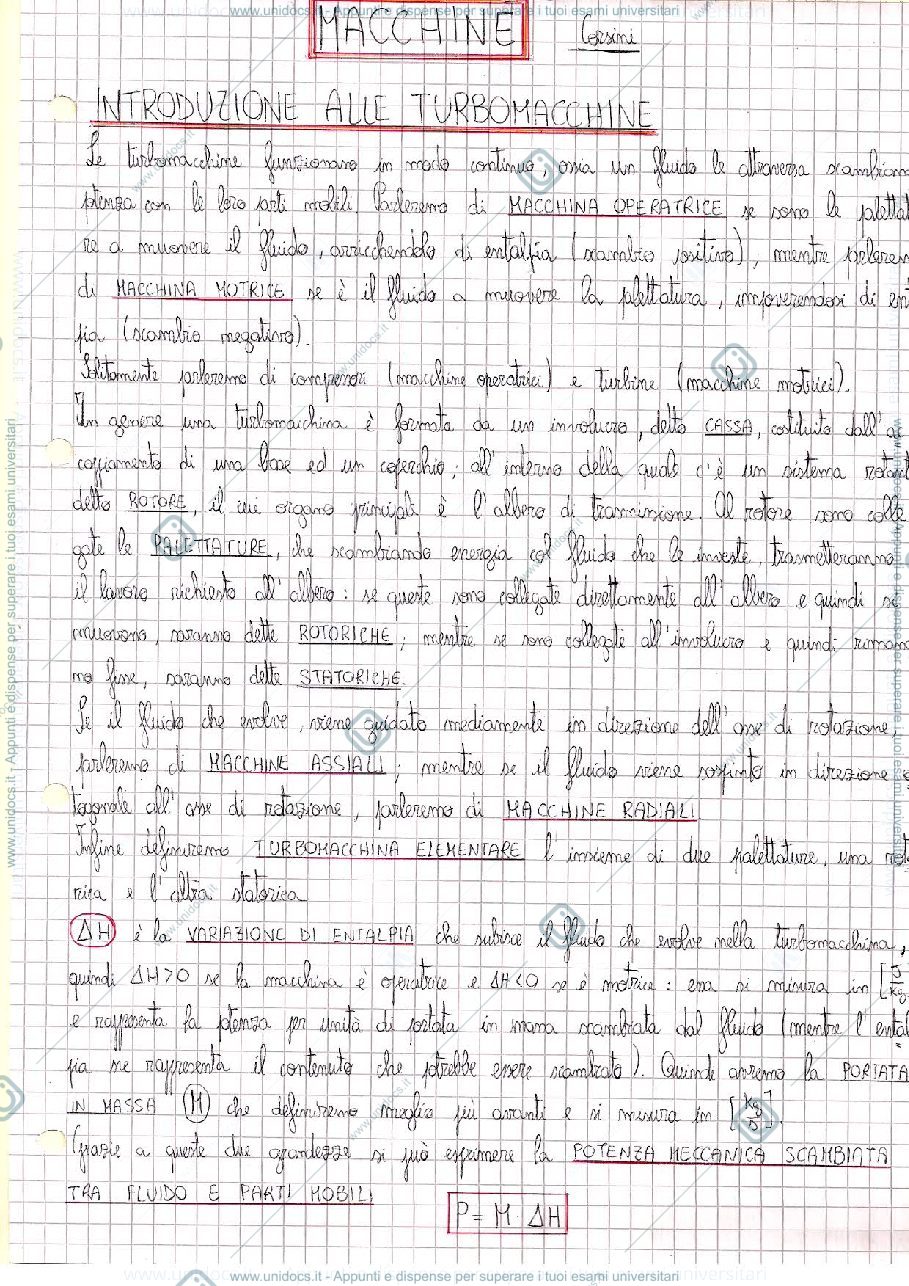 www.unidocs.it - Appunti e dispense per superare i tuoi esami universitari
MACCHINE Corsini
INTRODUZIONE ALLE TURBOMACCHINE
Le turbomacchine funzionano in modo continuo, ossia un fluido le attraversa scambiano
potenza con le loro parti mobili. Parleremo di MACCHINA OPERATRICE se sono le palettat
re a muovere il fluido, arricchendolo di entalpia (scambio positivo), mentre parlerem
di MACCHINA MOTRICE se è il fluido a muovere la palettatura, impoverendosi di ent
pia (scambio negativo).
Solitamente parleremo di compressori (macchine operatrici) e turbine (macchine motrici).
In genere una turbomacchina è formata da un involucro, detto CASSA, costituito dall'ac
coppiamento di una base ed un coperchio; all'interno della quale c'è un sistema rotant
detto ROTORE, il cui organo principale è l'albero di trasmissione. Al rotore sono colle
gate le PALETTATURE, che scambiando energia col fluido che le investe, trasmetteranno
il lavoro richiesto all'albero: se queste sono collegate direttamente all'albero e quindi si
muovono, saranno dette ROTORICHE; mentre se sono collegate all'involucro e quindi riman
no fisse, saranno dette STATORICHE.
Se il fluido che evolve, viene guidato mediamente in direzione dell'asse di rotazione,
parleremo di MACCHINE ASSIALI; mentre se il fluido viene sospinto in direzione o
togonale all'asse di rotazione, parleremo di MACCHINE RADIALI
Infine definiremo TURBOMACCHINA ELEMENTARE l'insieme di due palettature, una rot
rica e l'altra statorica
ΔH è la VARIAZIONE DI ENTALPIA che subisce il fluido che evolve nella turbomacchina,
quindi ΔH>0 se la macchina è operatrice e ΔH<0 se è motrice: essa si misura in [J/kg
e rappresenta la potenza per unità di portata in massa scambiata dal fluido (mentre l'ental
pia ne rappresenta il contenuto che potrebbe essere scambiato). Quindi avremo la PORTATA
IN MASSA M che definiremo meglio più avanti e si misura in [kg/s].
Grazie a queste due grandezze si può esprimere la POTENZA MECCANICA SCAMBIATA
TRA FLUIDO E PARTI MOBILI
P = M · ΔH
www.unidocs.it - Appunti e dispense per superare i tuoi esami universitari